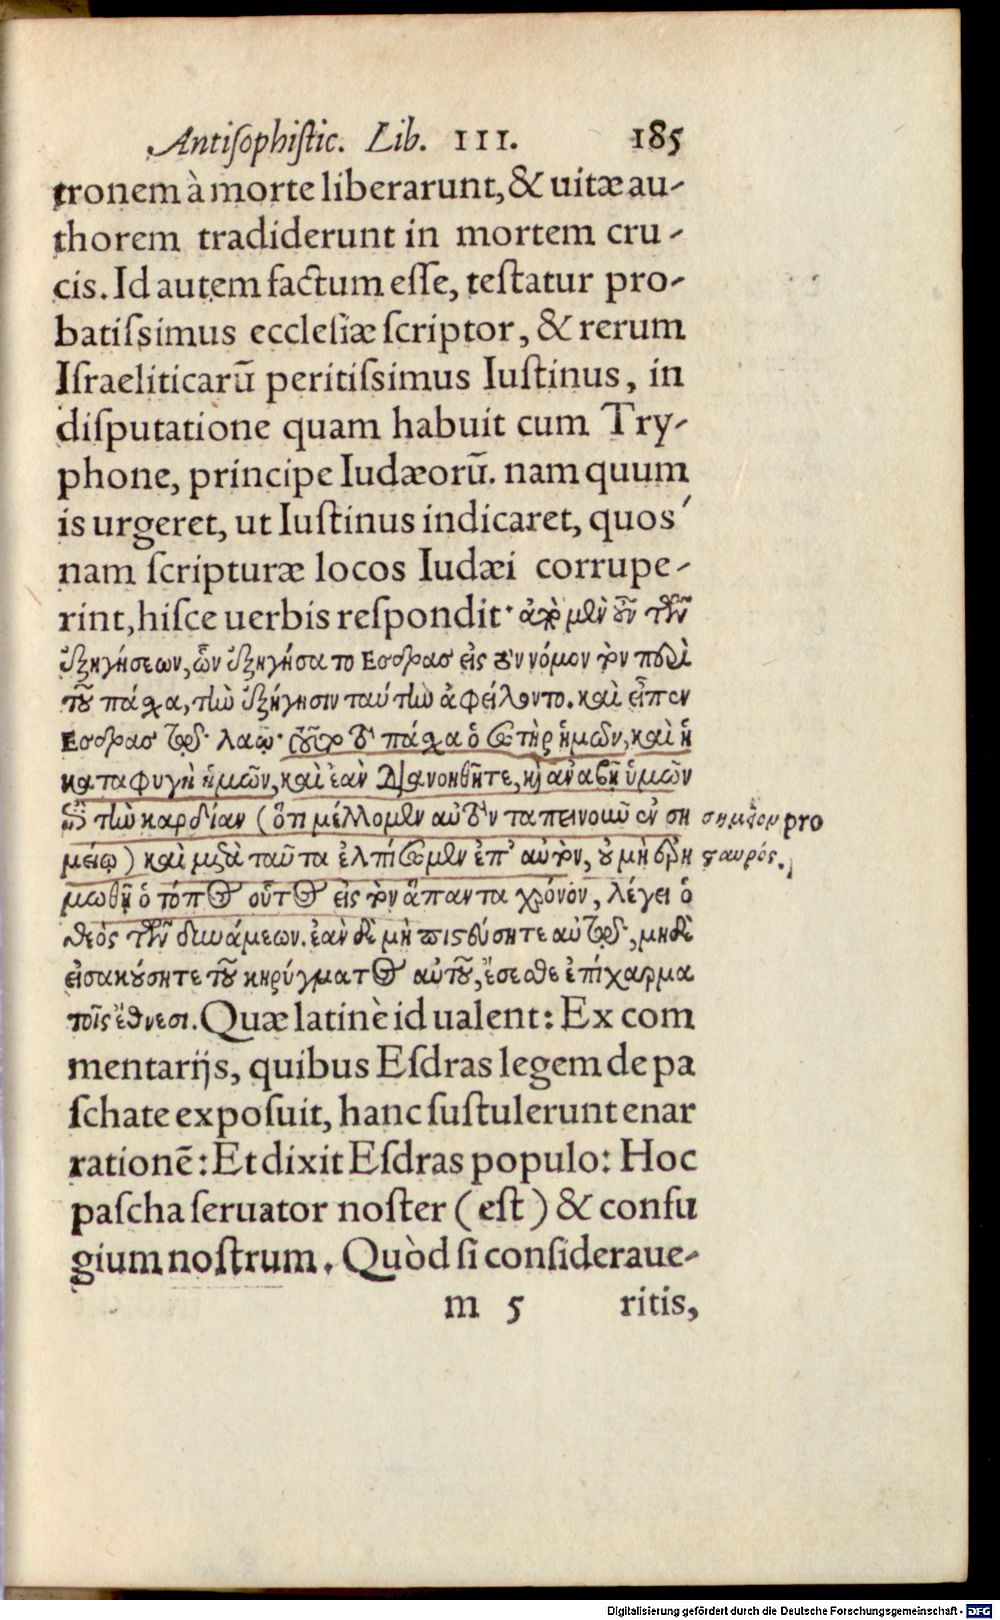 Antiſophiſtic. Lib. III. 185
tronem à morte liberarunt, & uitæ au-
thorem tradiderunt in mortem cru-
cis. Id autem factum eſſe, teſtatur pro-
batiſsimus eccleſiæ ſcriptor, & rerum
Iſraeliticarū peritiſsimus Iuſtinus, in
diſputatione quam habuit cum Try-
phone, principe Iudæorū. nam quum
is urgeret, ut Iuſtinus indicaret, quos
nam ſcripturæ locos Iudæi corrupe-
rint, hiſce uerbis reſpondit· ἀπὸ μὲν οὖν τῶν
ἐξηγήσεων, ὧν ἐξηγήσατο Εσδρας εἰς τὸν νόμον τὸν περὶ
τοῦ πάσχα, τὴν ἐξήγησιν ταύτην ἀφείλοντο. καὶ εἶπεν
Εσδρας τῷ λαῷ· τοῦτο τὸ πάσχα ὁ σωτὴρ ἡμῶν, καὶ ἡ
καταφυγὴ ἡμῶν, καὶ ἐὰν διανοηθῆτε, καὶ ἀναβῇ ὑμῶν
ἐπὶ τὴν καρδίαν (ὅτι μέλλομεν αὐτὸν ταπεινοῦν ἐν ση
μείῳ) καὶ μετὰ ταῦτα ἐλπίσωμεν ἐπ' αὐτὸν, οὐ μὴ ἐρη
μωθῇ ὁ τόπος οὗτος εἰς τὸν ἅπαντα χρόνον, λέγει ὁ
θεὸς τῶν δυνάμεων. ἐὰν δὲ μὴ πιστεύσητε αὐτῷ, μηδὲ
εἰσακούσητε τοῦ κηρύγματος αὐτοῦ, ἔσεσθε ἐπίχαρμα
τοῖς ἔθνεσι. Quæ latinè id ualent: Ex com
mentarijs, quibus Eſdras legem de pa
ſchate expoſuit, hanc ſuſtulerunt enar
rationē: Et dixit Eſdras populo: Hoc
paſcha ſeruator noſter (eſt) & confu
gium noſtrum. Quòd ſi conſideraue-
m 5 ritis,
σημεῖον pro
σταυρός.
Digitalisierung gefördert durch die Deutsche Forschungsgemeinschaft - DFG